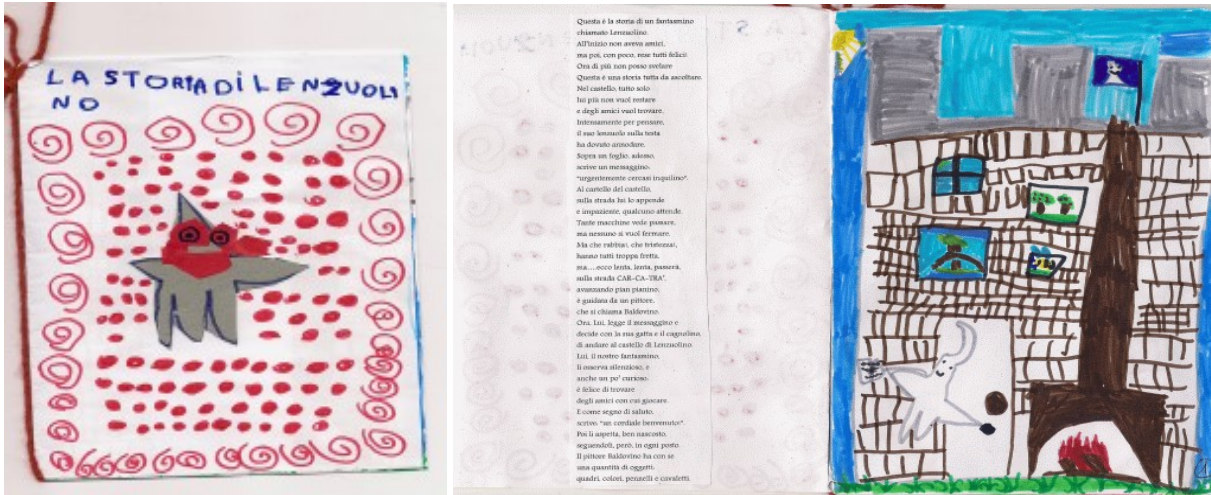 LA STORIA DI LENZUOLI
NO
Questa è la storia di un fantasmino
chiamato Lenzuolino.
All'inizio non aveva amici,
ma poi, con poco, rese tutti felici.
Ora di più non posso svelare
Questa è una storia tutta da ascoltare.
Nel castello, tutto solo
lui più non vuol restare
e degli amici vuol trovare.
Intensamente per pensare,
il suo lenzuolo sulla testa
ha dovuto annodare.
Sopra un foglio, adesso,
scrive un messaggino.
"urgentemente cercasi inquilino".
Al castello del castello,
sulla strada lui lo appende
e impaziente, qualcuno attende.
Tante macchine vede passare,
ma nessuno si vuol fermare.
Ma che rabbia!, che tristezza!,
hanno tutti troppa fretta,
ma....ecco lenta, lenta, passerà,
sulla strada CAR-CA-TRA',
avanzando pian pianino,
è guidata da un pittore,
che si chiama Baldovino.
Ora, Lui, legge il messaggino e
decide con la sua gatta e il cagnolino,
di andare al castello di Lenzuolino.
Lui, il nostro fantasmino,
li osserva silenzioso, e
anche un po' curioso:
è felice di trovare
degli amici con cui giocare.
E come segno di saluto,
scrive: "un cordiale benvenuto!".
Poi li aspetta, ben nascosto,
seguendoli, però, in ogni posto.
Il pittore Baldovino ha con se
una quantità di oggetti:
quadri, colori, pennelli e cavaletti.